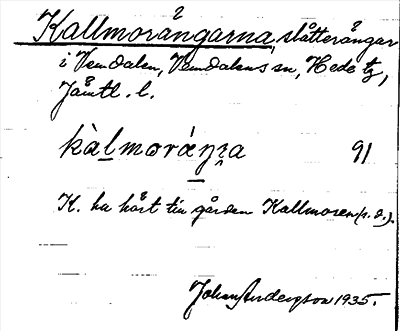 Kallmorängarna, slåtterängar
i Vemdalen, Vemdalens sn, Hede tg,
Jämtl. l.
kàl̠moráŋ̠r̥a 91
K. ha hört till gården Kallmoren (s.d.).
Johan Anderson 1935.